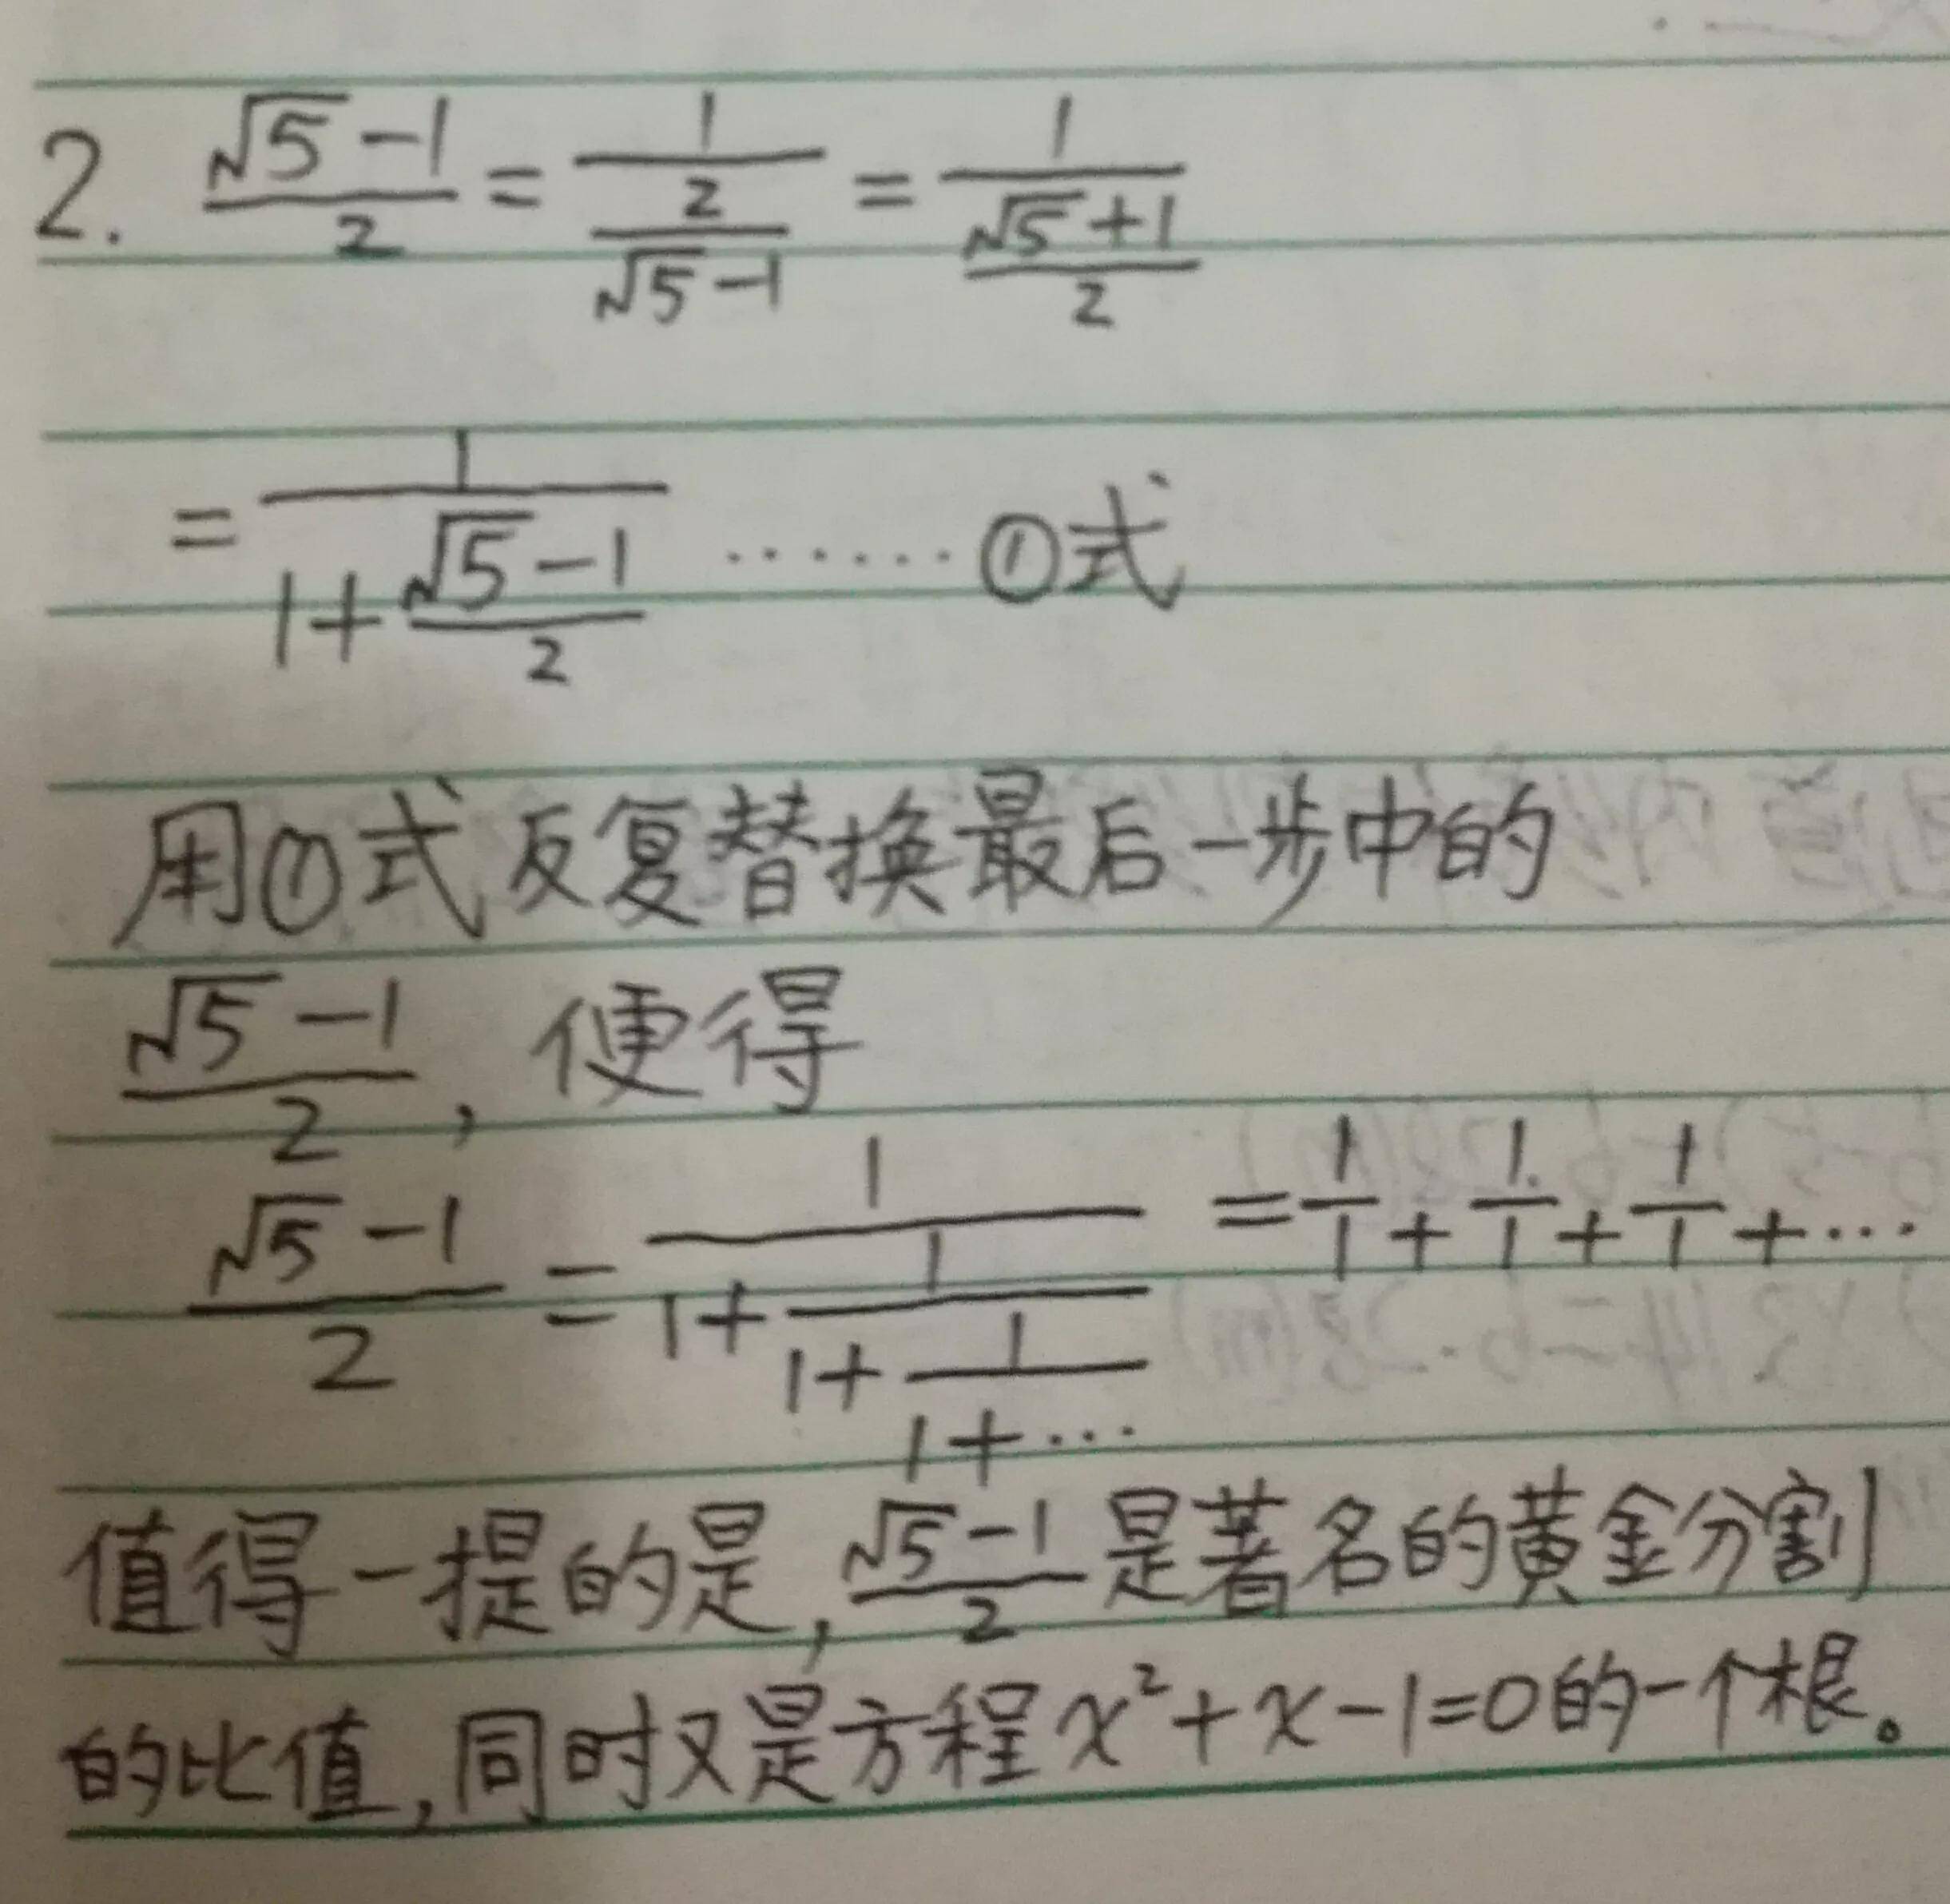 2. \frac{\sqrt{5}-1}{2} = \frac{1}{\frac{2}{\sqrt{5}-1}} = \frac{1}{\frac{\sqrt{5}+1}{2}}
= \frac{1}{1+\frac{\sqrt{5}-1}{2}} ……①式
用①式反复替换最后一步中的
\frac{\sqrt{5}-1}{2}, 便得
\frac{\sqrt{5}-1}{2} = \frac{1}{1+\frac{1}{1+\frac{1}{1+\cdots}}} = \frac{1}{1}_{+}\frac{1}{1}_{+}\frac{1}{1}_{+\cdots}
值得一提的是, \frac{\sqrt{5}-1}{2}是著名的黄金分割
的比值, 同时又是方程x²+x-1=0的一个根。